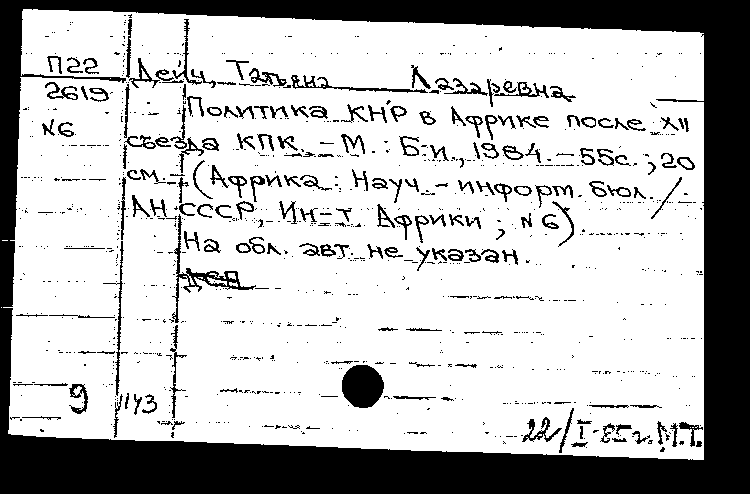 П22 Дейч, Татьяна Лазаревна
2619 Политика КНР в Африке после XII
N6 съезда КПК. – М. : Б.и., 1984. – 55с. ; 20
см. – (Африка : Науч. - информ. бюл. /
АН СССР, Ин-т Африки ; N6).
На обл. авт. не указан.
9 1143
22/I-85г. М.Т.